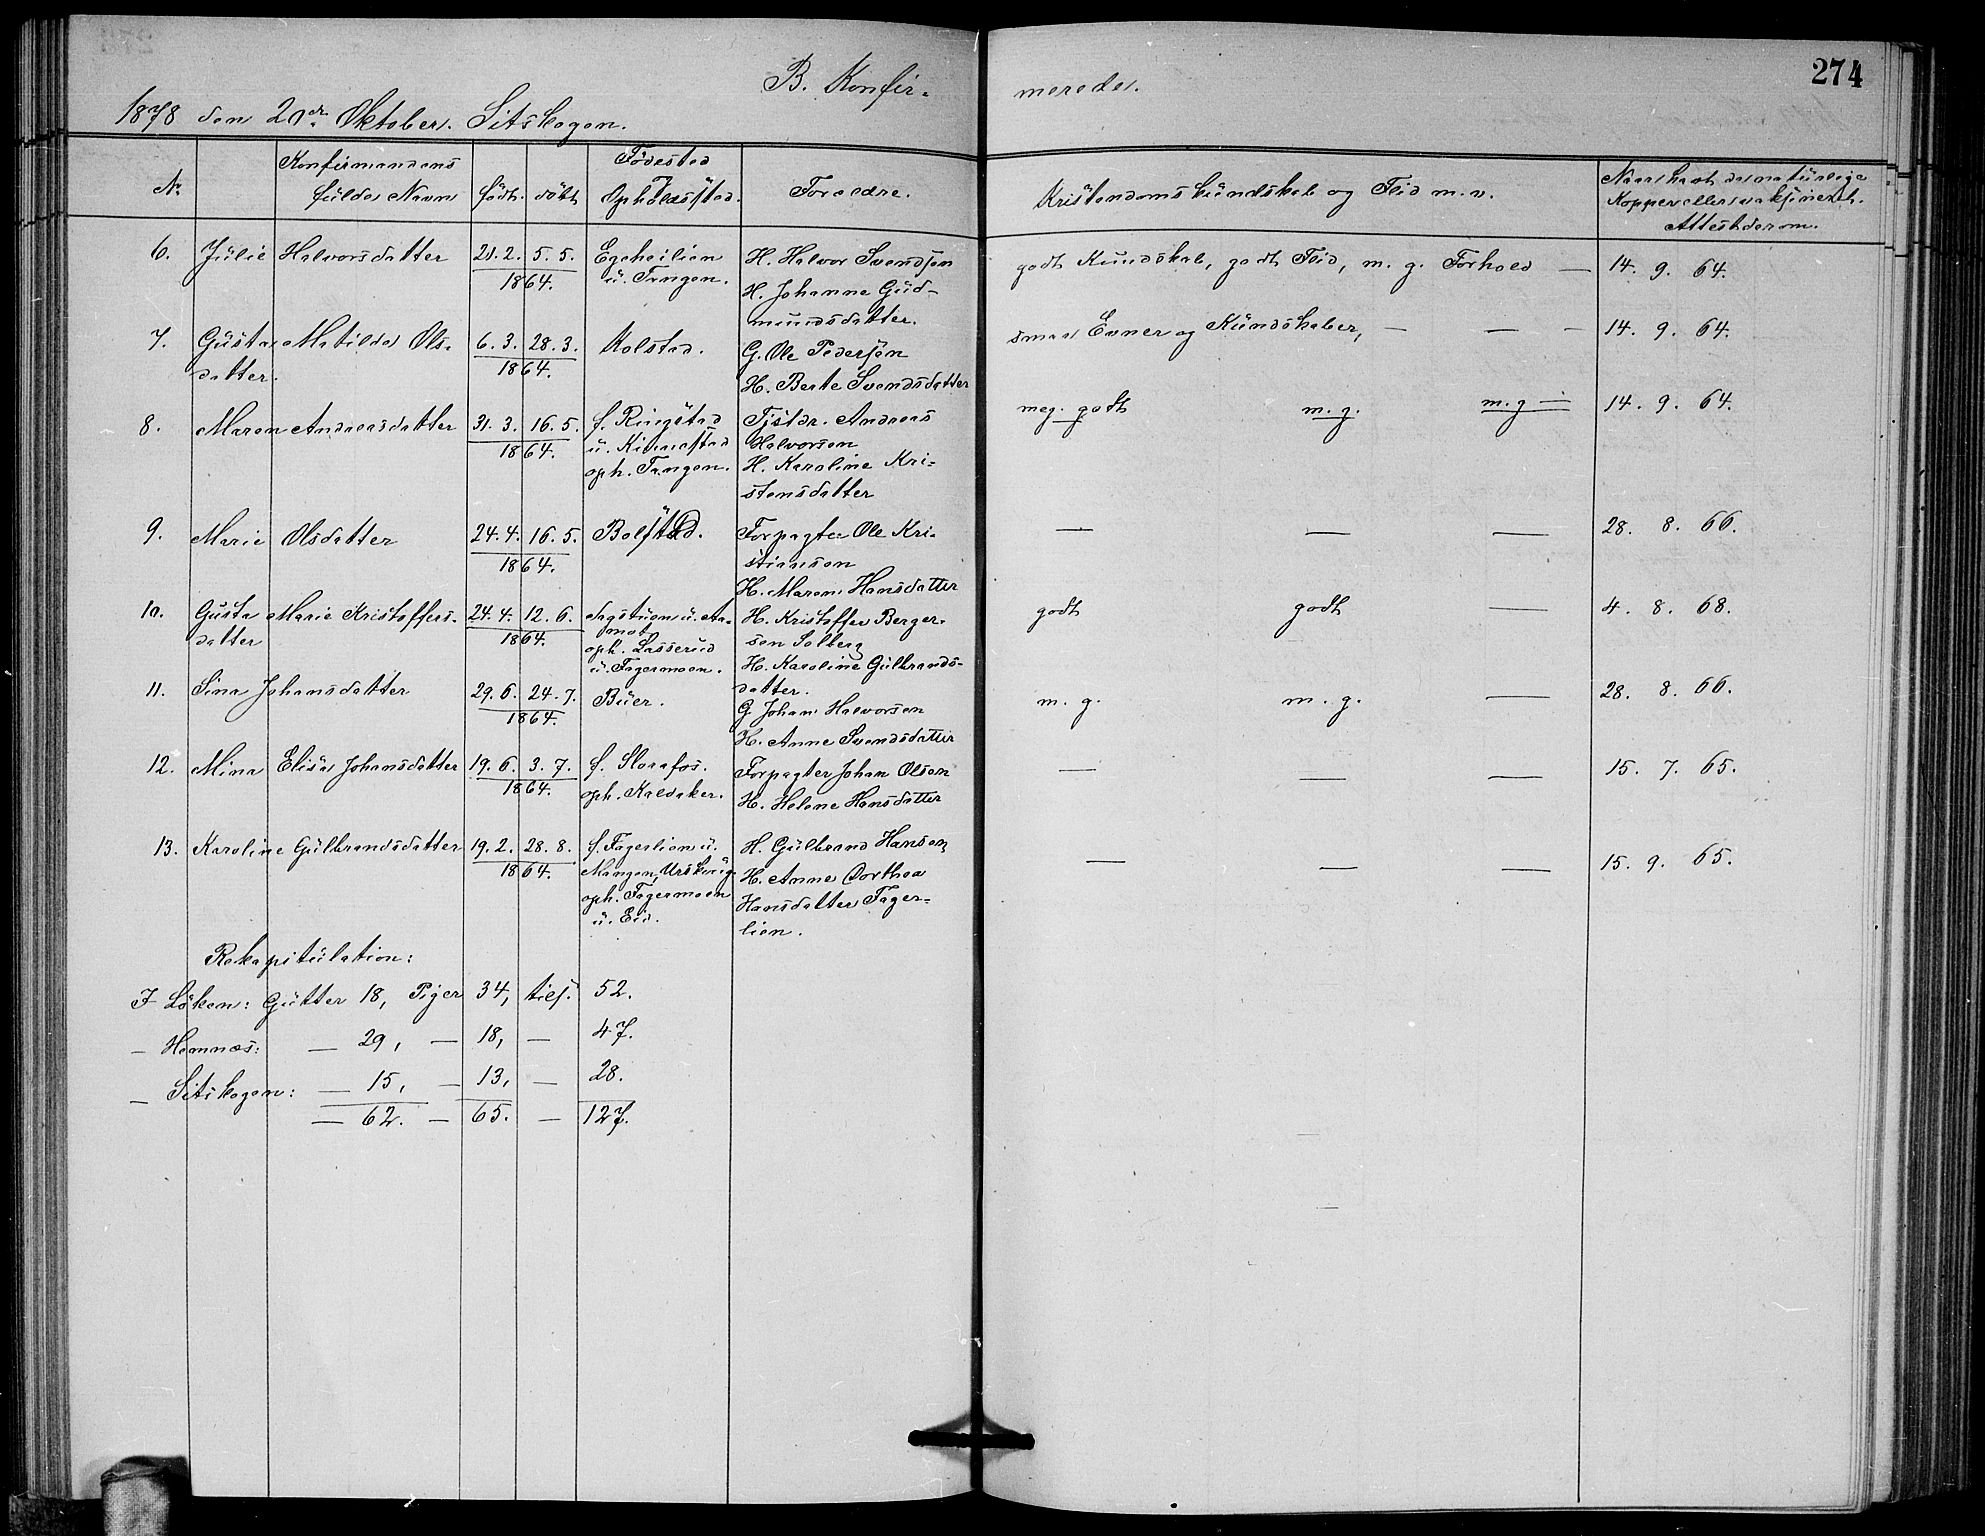 274
B. Konfir-
merede.
1878 den 20de Oktober. Sitskogen.
No
Konfirmandens
fulde Navn
født.
döbt
Födested
Opholdssted.
Forældre.
Kristendomskundskab og Flid m. v.
Naar havt de naturlige
Kopper eller vaksineret.
Attest derom.
6. Julie Halvorsdatter 21.2. 5.5. 1864.
u. Tangen.
H. Halvor Svendsen
H. Johanne Gud-
mundsdatter.
godt Kundskab, godt Flid, m. g. Forhold — 14. 9. 64.
7. Gusta Matilde Ols-
datter.
6.3. 28.3. 1864.
Kolstad.
G. Ole Pedersen
H. Berte Svendsdatter
smaa Evner og Kundskaber, — — — 14. 9. 64.
8. Maren Andreasdatter 31.3. 16.5. 1864.
f. Ringstad
u. Kinnestad
oph. Tangen.
Tjstdr. Andreas
Halvorsen
H. Karoline Kri-
stensdatter
meg. godt m.g. m.g — 14. 9. 64.
9. Marie Olsdatter 24.4. 16.5. 1864.
Bolstad.
Forpagter Ole Kri-
stiansen
H. Maren Hansdatter
— — — 28. 8. 66.
10. Gusta Marie Kristoffers-
datter
24.4. 12.6. 1864.
Sagstuen u. Aa-
mot
oph. Lasserud
u. Fagermoen.
H. Kristoffer Berger-
sen Solberg
H. Karoline Gulbrands-
datter.
godt godt — 4. 8. 68.
11. Sina Johansdatter 29.6. 24.7. 1864.
Buer.
G. Johan Halvorsen
H. Anne Svendsdatter
m. g. m. g. — 28. 8. 66.
12. Mina Elise Johansdatter 19.6. 3.7. 1864.
f. Slorafos.
oph. Kaldaker.
Forpagter Johan Olsen
H. Helene Hansdatter
— — — 15. 7. 65.
13. Karoline Gulbrandsdatter 19.2. 28.8. 1864.
f. Fagerlien u.
Mangen, Urskoug
oph. Fagermoen
u. Eid.
H. Gulbrand Hansen
H. Anne Dorthea
Hansdatter Fager-
lien.
— — — 15. 9. 65.
Rekapitulation:
I Löken: Gutter 18, Piger 34, tils. 52.
— Hemnæs: — 29, — 18, — 47.
— Sitskogen: — 15, — 13, — 28.
— 62. — 65. — 127.